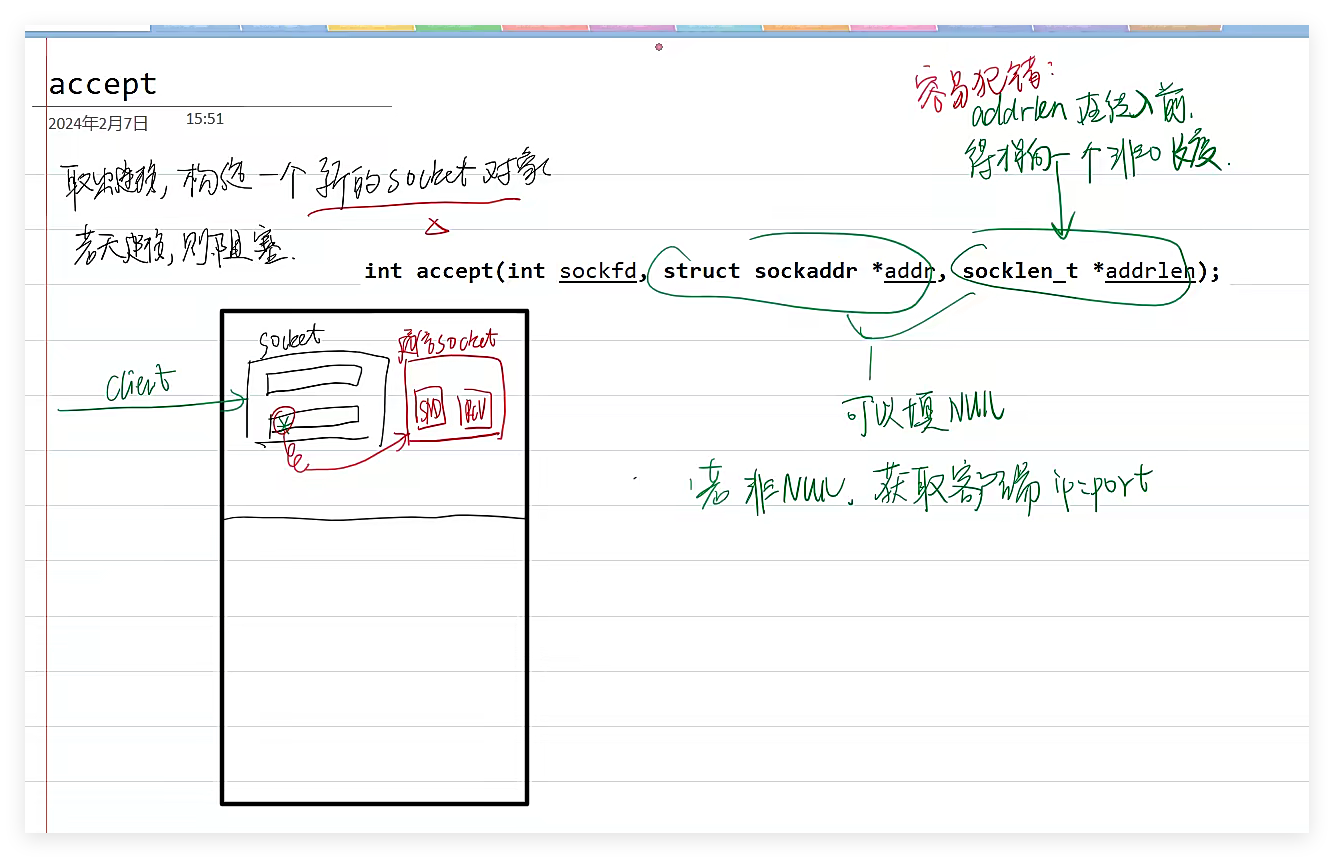 accept
2024年2月7日 15:51
取出连接, 构造一个新的socket对象
若无连接, 则阻塞.
容易犯错:
addrlen 在传入前,
得指向一个非0长度.
int accept(int sockfd, struct sockaddr *addr, socklen_t *addrlen);
可以填NULL
若非NULL, 获取客户端 ip:port
socket
通信socket
client
SND
RCV